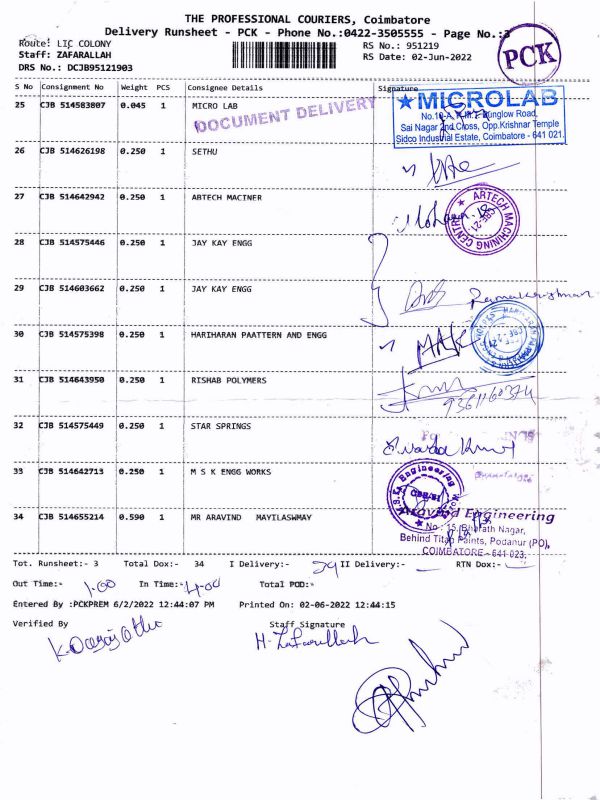 THE PROFESSIONAL COURIERS, Coimbatore
Delivery Runsheet - PCK - Phone No.:0422-3505555 - Page No.:3
Route: LIC COLONY
RS No.: 951219
Staff: ZAFARALLAH
RS Date: 02-Jun-2022
DRS No.: DCJB95121903
PCK
S No Consignment No Weight PCS Consignee Details Signature
25 CJB 514583807 0.045 1 MICRO LAB
DOCUMENT DELIVERY
★MICROLAB
Sai Nagar 2nd Cross, Opp.Krishnar Temple
Sidco Industrial Estate, Coimbatore - 641 021.
26 CJB 514626198 0.250 1 SETHU
27 CJB 514642942 0.250 1 ABTECH MACTNER
ARTECH MACHINING CENTRE
CBE-21
28 CJB 514575446 0.250 1 JAY KAY ENGG
29 CJB 514603662 0.250 1 JAY KAY ENGG
Ramakrishnan
30 CJB 514575398 0.250 1 HARIHARAN PAATTERN AND ENGG
31 CJB 514643950 0.250 1 RISHAB POLYMERS
32 CJB 514575449 0.250 1 STAR SPRINGS
33 CJB 514642713 0.250 1 M S K ENGG WORKS
34 CJB 514655214 0.590 1 MR ARAVIND MAYILASWMAY
Aravind Engineering
No : 15, Bharath Nagar,
Behind Titan Paints, Podanur (PO),
COIMBATORE - 641 023.
Tot. Runsheet:- 3 Total Dox:- 34 I Delivery:- 29 II Delivery:- RTN Dox:-
Out Time:- 1.00 In Time:- 4.00 Total POD:-
Entered By :PCKPREM 6/2/2022 12:44:07 PM Printed On: 02-06-2022 12:44:15
Verified By Staff Signature
H. Zafarullah